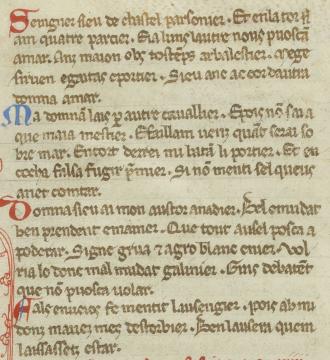 Seingner sieu de chastel parsonier. Et enla tor si
am quatre parcer. Eia luns lautre nons puosca
amar. Anz maion obs tostemps arbalestier. Mege
siruen e gaitas e portier. Sieu anc ac cor dautra
domna amar.
Ma domnam lais per autre cavallier. E pois non sai a
que maia mestier. E faillam uenz quan serai so
bre mar. En cort de rei mi batan li portier. Et en
cocha falsa fugir primier. Si non menti sel queus
anet comtar.
Domna sieu ai mon austor anadier. Bel e mudat
ben prendent e mainier. Que tout ausel posca a
poderar. Signe e grua et agro blanc e nier. Vol
ria lo donc mal mudat galinier. Gras debatent
que non puosca volar.
Fals enuios fementit lausengier. Pois ab mi
donz mauez mes destorbier. Ben lausera quem
laissassetz estar.